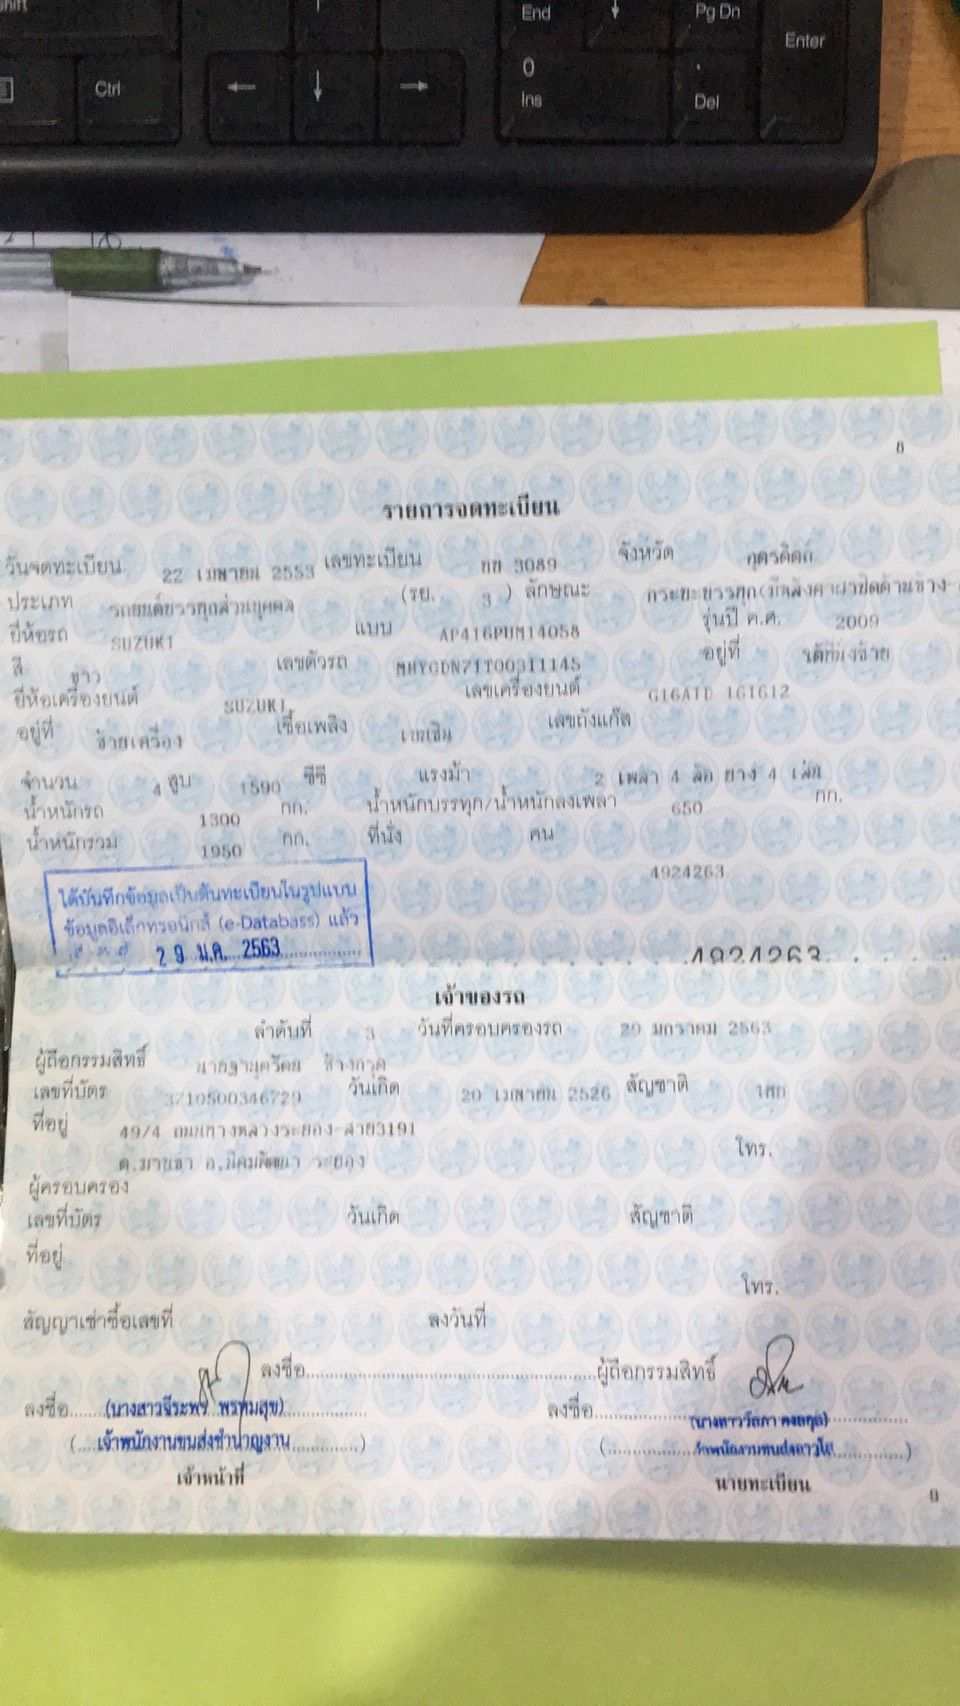 End
Pg Dn
Enter
Ctrl
0
Ins
.
Del
8
รายการจดทะเบียน
วันจดทะเบียน 22 เมษายน 2553 เลขทะเบียน 3089 จังหวัด อุตรดิตถ์
ประเภท รถยนต์บรรทุกส่วนบุคคล (รย. 3 ) ลักษณะ กระบะบรรทุก(มีหลังคาฝาปิดด้านข้าง-
ยี่ห้อรถ SUZUKI แบบ AP416PUM14058 รุ่นปี ค.ศ. 2009
สี ขาว เลขตัวรถ MHYGDN71T00311145 อยู่ที่ ใต้ที่นั่งซ้าย
ยี่ห้อเครื่องยนต์ SUZUKI เลขเครื่องยนต์ G16AID 161612
อยู่ที่ ซ้ายเครื่อง เชื้อเพลิง เบนซิน เลขถังแก๊ส
จำนวน 4 สูบ 1590 ซีซี แรงม้า 2 เพลา 4 ล้อ ยาง 4 เส้น
น้ำหนักรถ 1300 กก. น้ำหนักบรรทุก/น้ำหนักลงเพลา 650 กก.
น้ำหนักรวม 1950 กก. ที่นั่ง คน
4924263
ได้บันทึกข้อมูลเป็นต้นทะเบียนในรูปแบบ
ข้อมูลอิเล็กทรอนิกส์ (e-Database) แล้ว
29 ม.ค. 2563
4924263
เจ้าของรถ
ลำดับที่ 3 วันที่ครอบครองรถ 29 มกราคม 2563
ผู้ถือกรรมสิทธิ์
เลขที่บัตร 3710500346729 วันเกิด 20 เมษายน 2526 สัญชาติ ไทย
ที่อยู่ 49/4 ถนนทางหลวงระยอง-สาย3191
ต.มาบข่า อ.นิคมพัฒนา ระยอง โทร.
ผู้ครอบครอง
เลขที่บัตร วันเกิด สัญชาติ
ที่อยู่
โทร.
สัญญาเช่าซื้อเลขที่ ลงวันที่
ลงชื่อ ผู้ถือกรรมสิทธิ์
ลงชื่อ (นางสาวจีระพร พรหมสุข) ลงชื่อ (นางสาววัลภา คงสกุล)
(เจ้าพนักงานขนส่งชำนาญงาน) (เจ้าพนักงานขนส่งอาวุโส)
เจ้าหน้าที่ นายทะเบียน